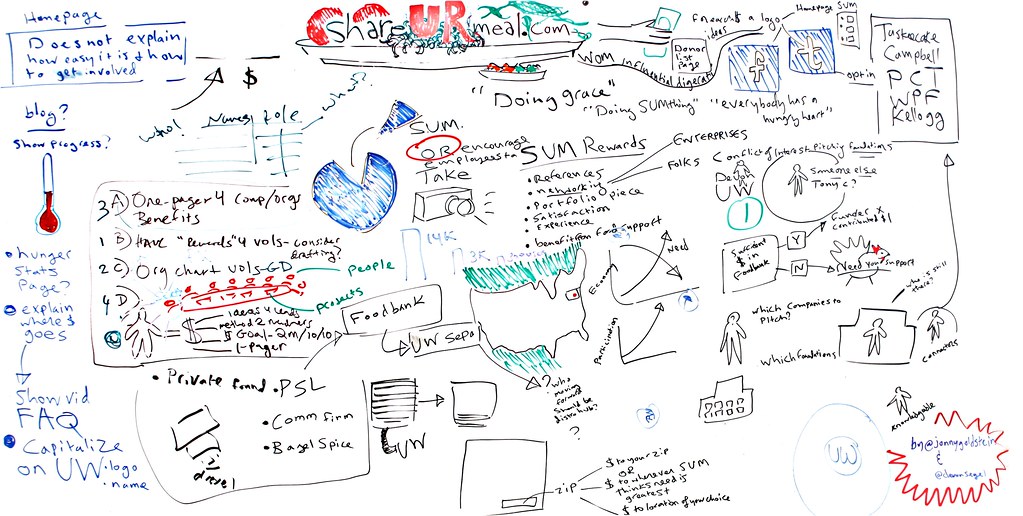 Homepage
Does not explain
how easy it is & how
to get involved
$
blog?
Show Progress?
hunger
Stats
Page?
explain
where $
goes
Show vid
FAQ
Capitalize
on UW.logo
.name
Share UR meal.com
"Doing grace"
WOM influential digerati
ideas
Donor
list
page
Homepage SUM
f
t
opt in
"Doing SUMthing"
"everybody has a
hungry heart"
Campbell
PCT
WPF
Kellogg
who?
Names
role
what?
SUM.
OR encourage
employees to
Take
SUM Rewards
References
networking
Portfolio piece
Satisfaction
Experience
benefit from food support
ENTERPRISES
FOLKS
3 A) One-pager 4 comp/orgs
Benefits
1 B) HAVE "Rewards" 4 vols- consider
drafting?
2 C) Org chart vols-GD
people
projects
4 D)
ideas 4 leads
method 2 numbers
$ Goal-2m/10/10
1-pager
= $
14K
3K
Foodbank
UW
Private found
PSL
Comm firm
Bagel Spice
UW
Economy
need
Participation
? who
moving
forward
should be
distro hub?
?
zip
$ to your zip
OR
$ to wherever SUM
thinks need is
greatest
$ to location of your choice
Conflict of Interest Pitching foundations
Devon
1
Someone else
Tony C?
Sufficient
$ in
Foodbank
Y
N
Funder X
contributed $1
Need your support
which Companies to
Pitch?
which foundations
who is still
there?
connectors
Knowledgable
UW
by @jonnygoldstein
&
@devonsegel